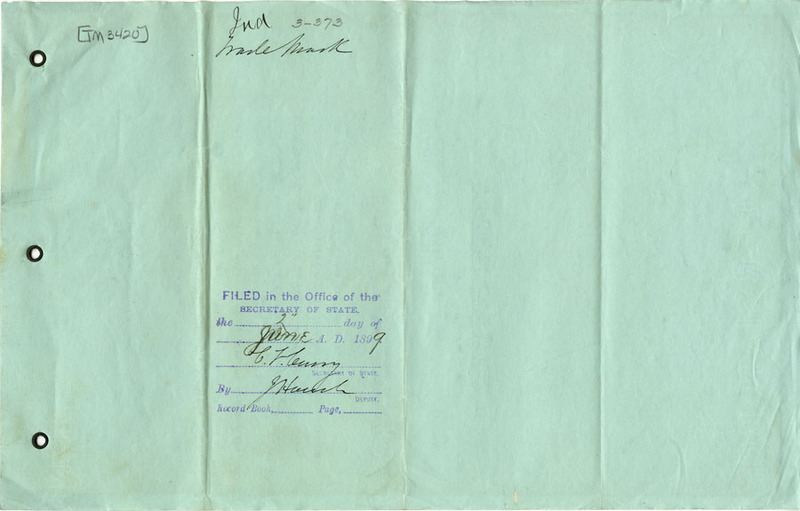 [TM3420]
Ind 3-373
Trade Mark
FILED in the Office of the
SECRETARY OF STATE.
the 2" day of
June A. D. 1899
C. F. Curry
SECRETARY OF STATE.
By
DEPUTY.
Record Book, Page,